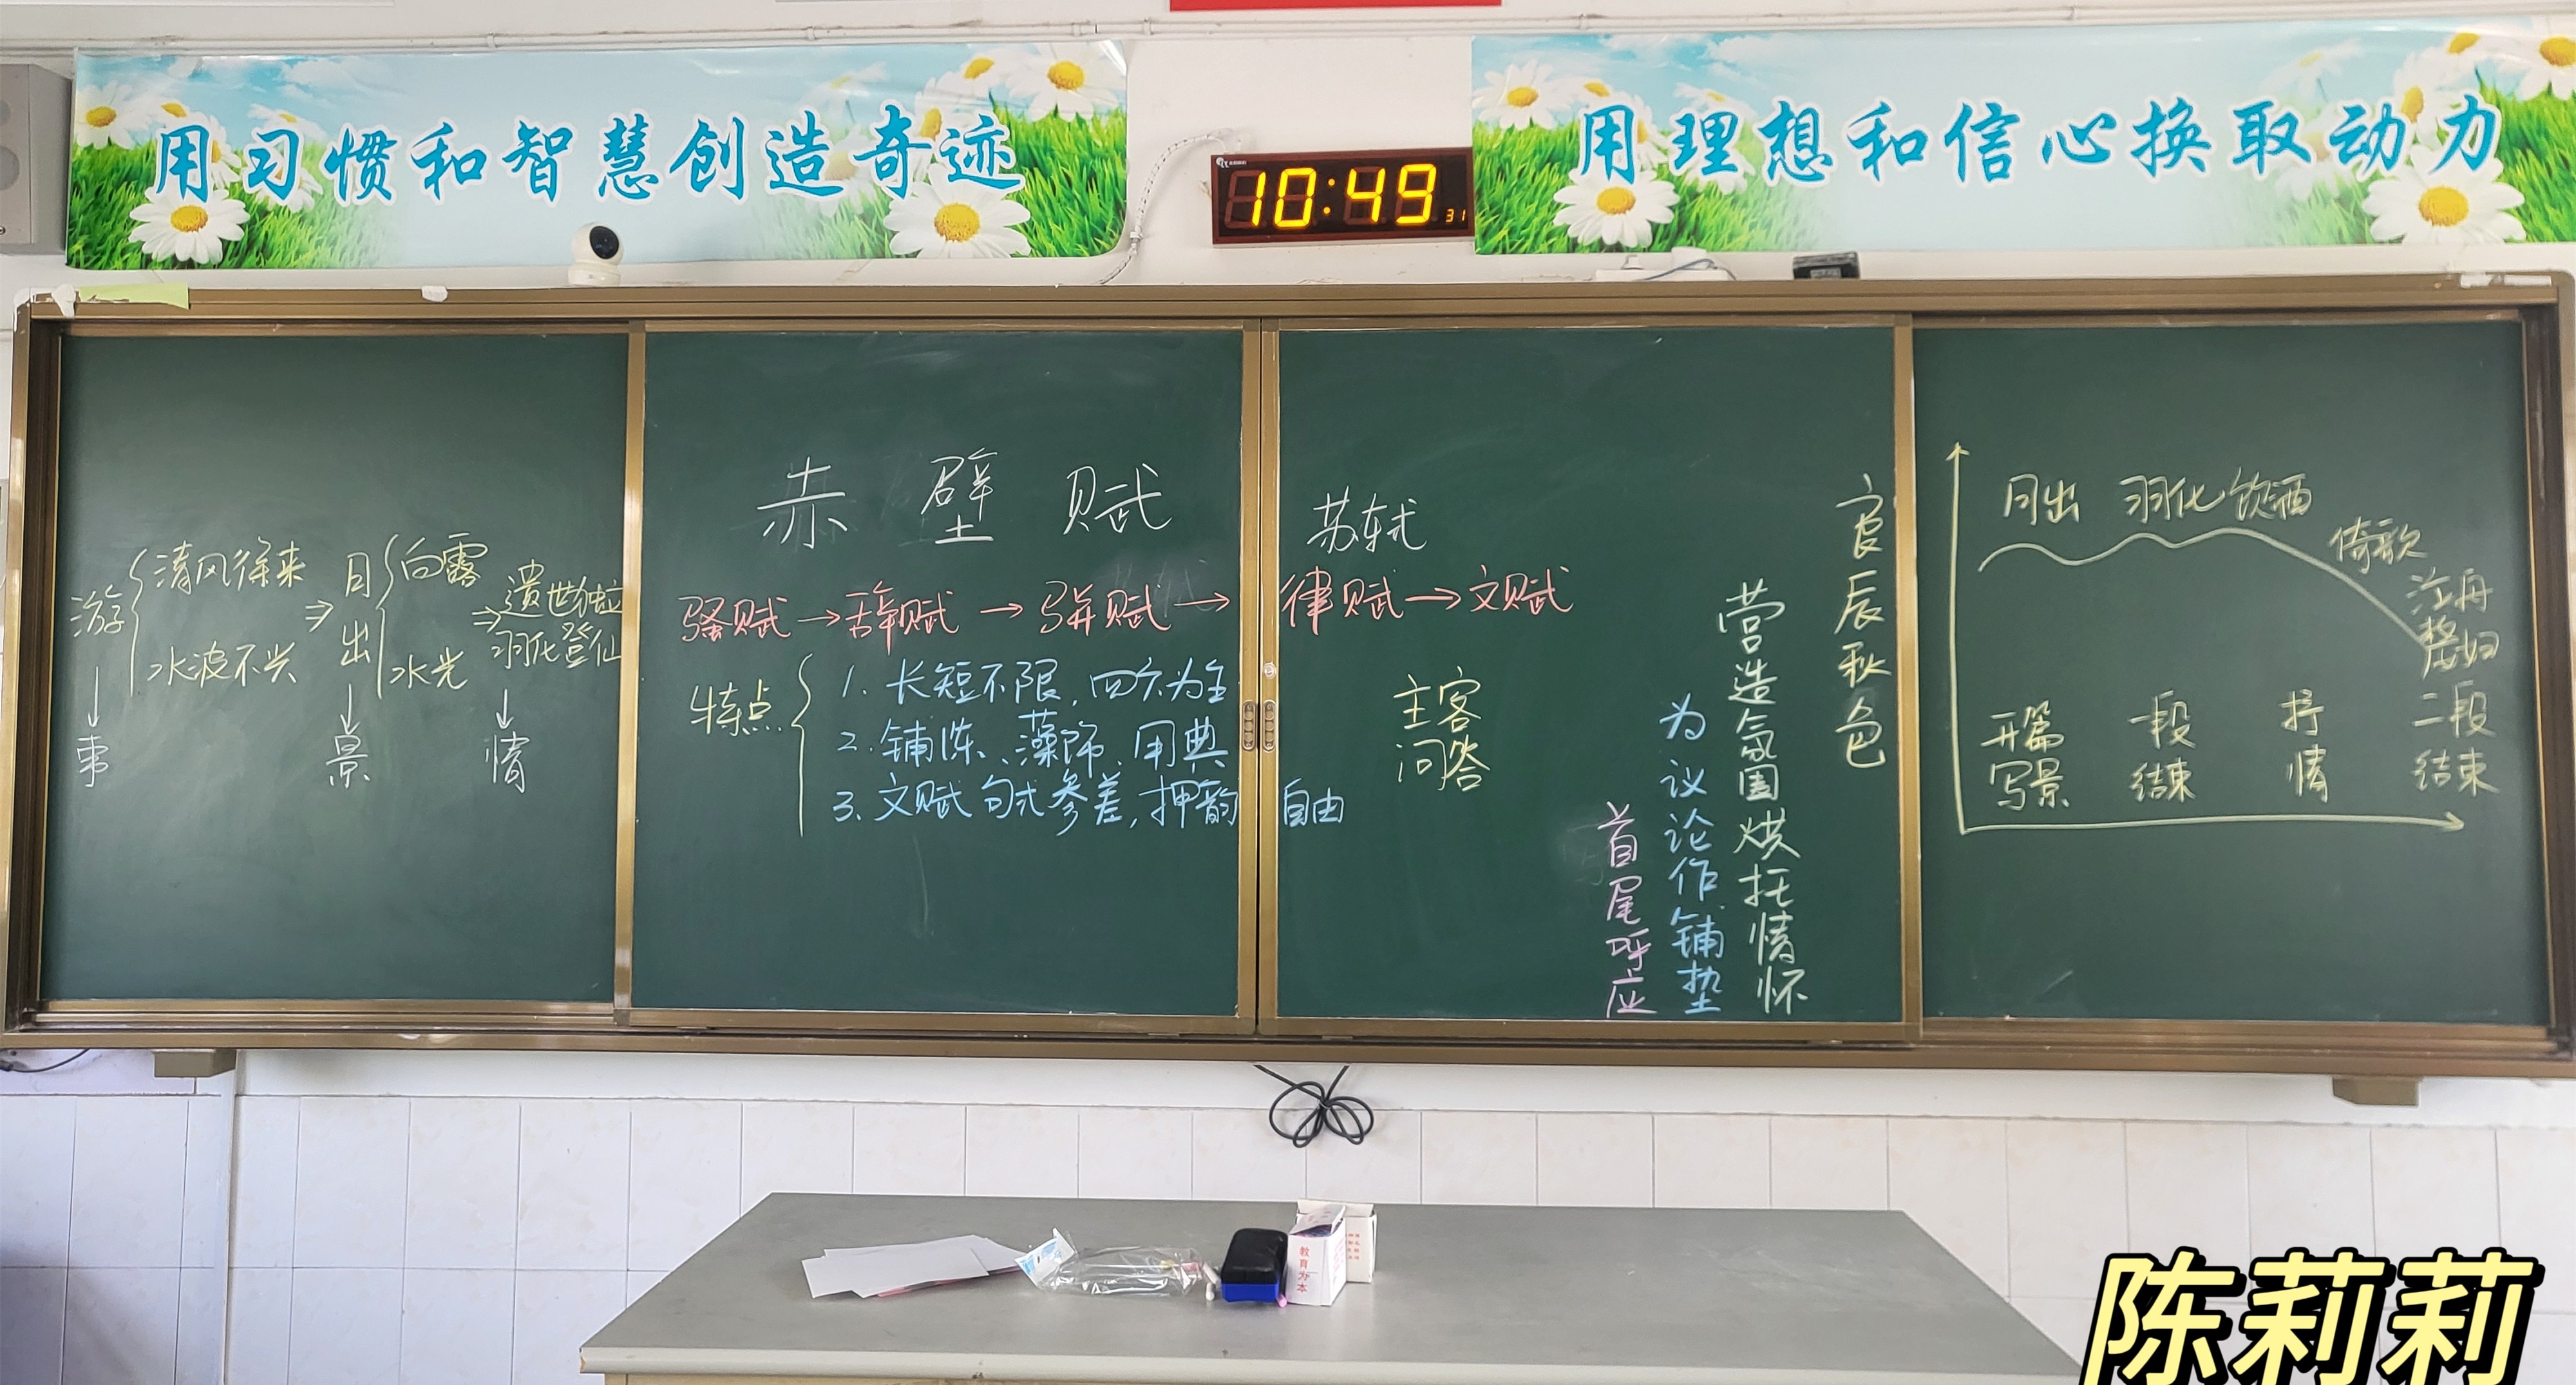 用习惯和智慧创造奇迹
10:49 31
用理想和信心换取动力
游
清风徐来
水波不兴
⇒
月出
白露
水光
⇒
遗世独立
羽化登仙
↓
事
↓
景
↓
情
赤壁赋
苏轼
骚赋→辞赋→骈赋→律赋→文赋
特点
1. 长短不限,四六为主
2. 铺陈、藻饰、用典
3. 文赋句式参差,押韵自由
主客
问答
良辰秋色
营造氛围烘托情怀
为议论作铺垫
首尾呼应
月出 羽化 饮酒
倚歌
泣舟
嫠妇
开篇
写景
一段
结束
抒
情
二段
结束
教育为本
陈莉莉